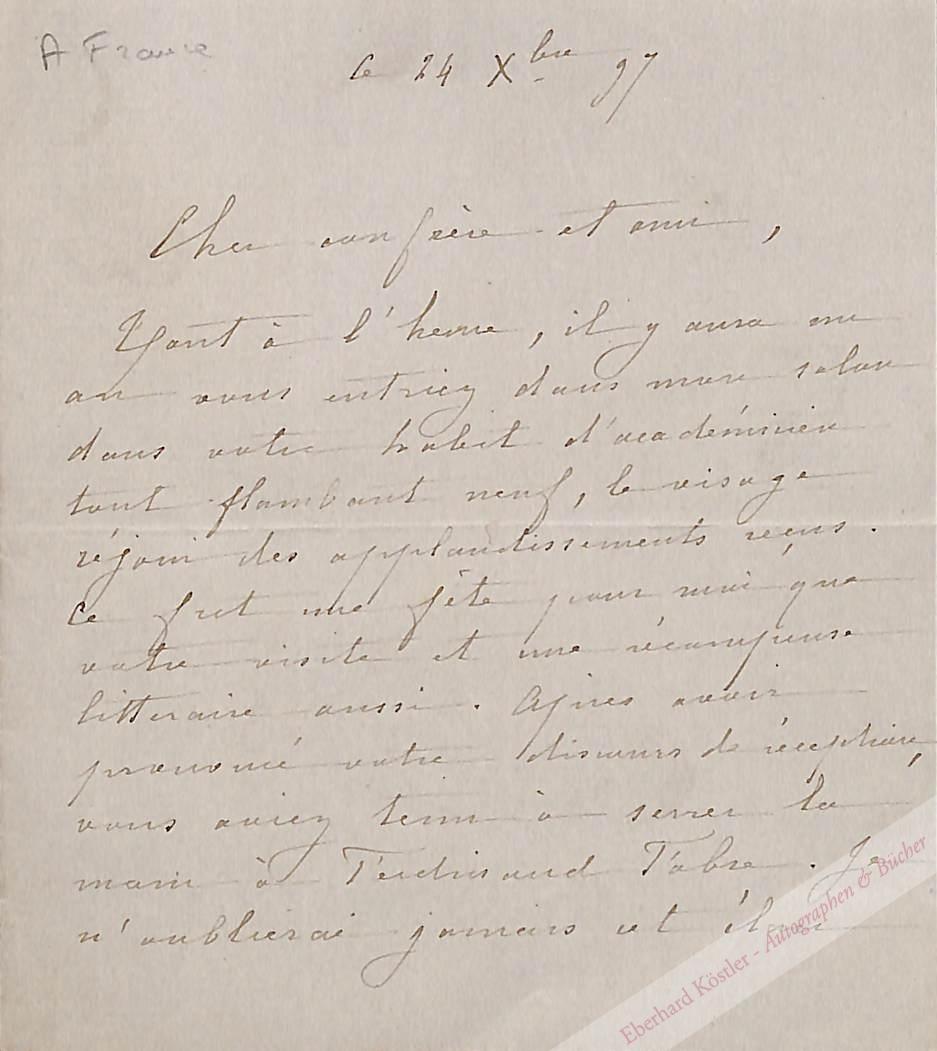 A France
Ce 24 Xbre 97
Cher confrère et ami,
Tant à l'heure, il y aura un
an vous entriez dans mon salon
dans votre habit d'académicien
tout flambant neuf, le visage
réjoui des applaudissements reçus.
Ce fut une fête pour moi que
votre visite et une récompense
litteraire aussi. Après avoir
prononcé votre discours de réception,
vous aviez tenu à serrer la
main à Ferdinand Fabre. Je
n'oublierai jamais cet élan
Eberhard Köstler - Autographen & Bücher